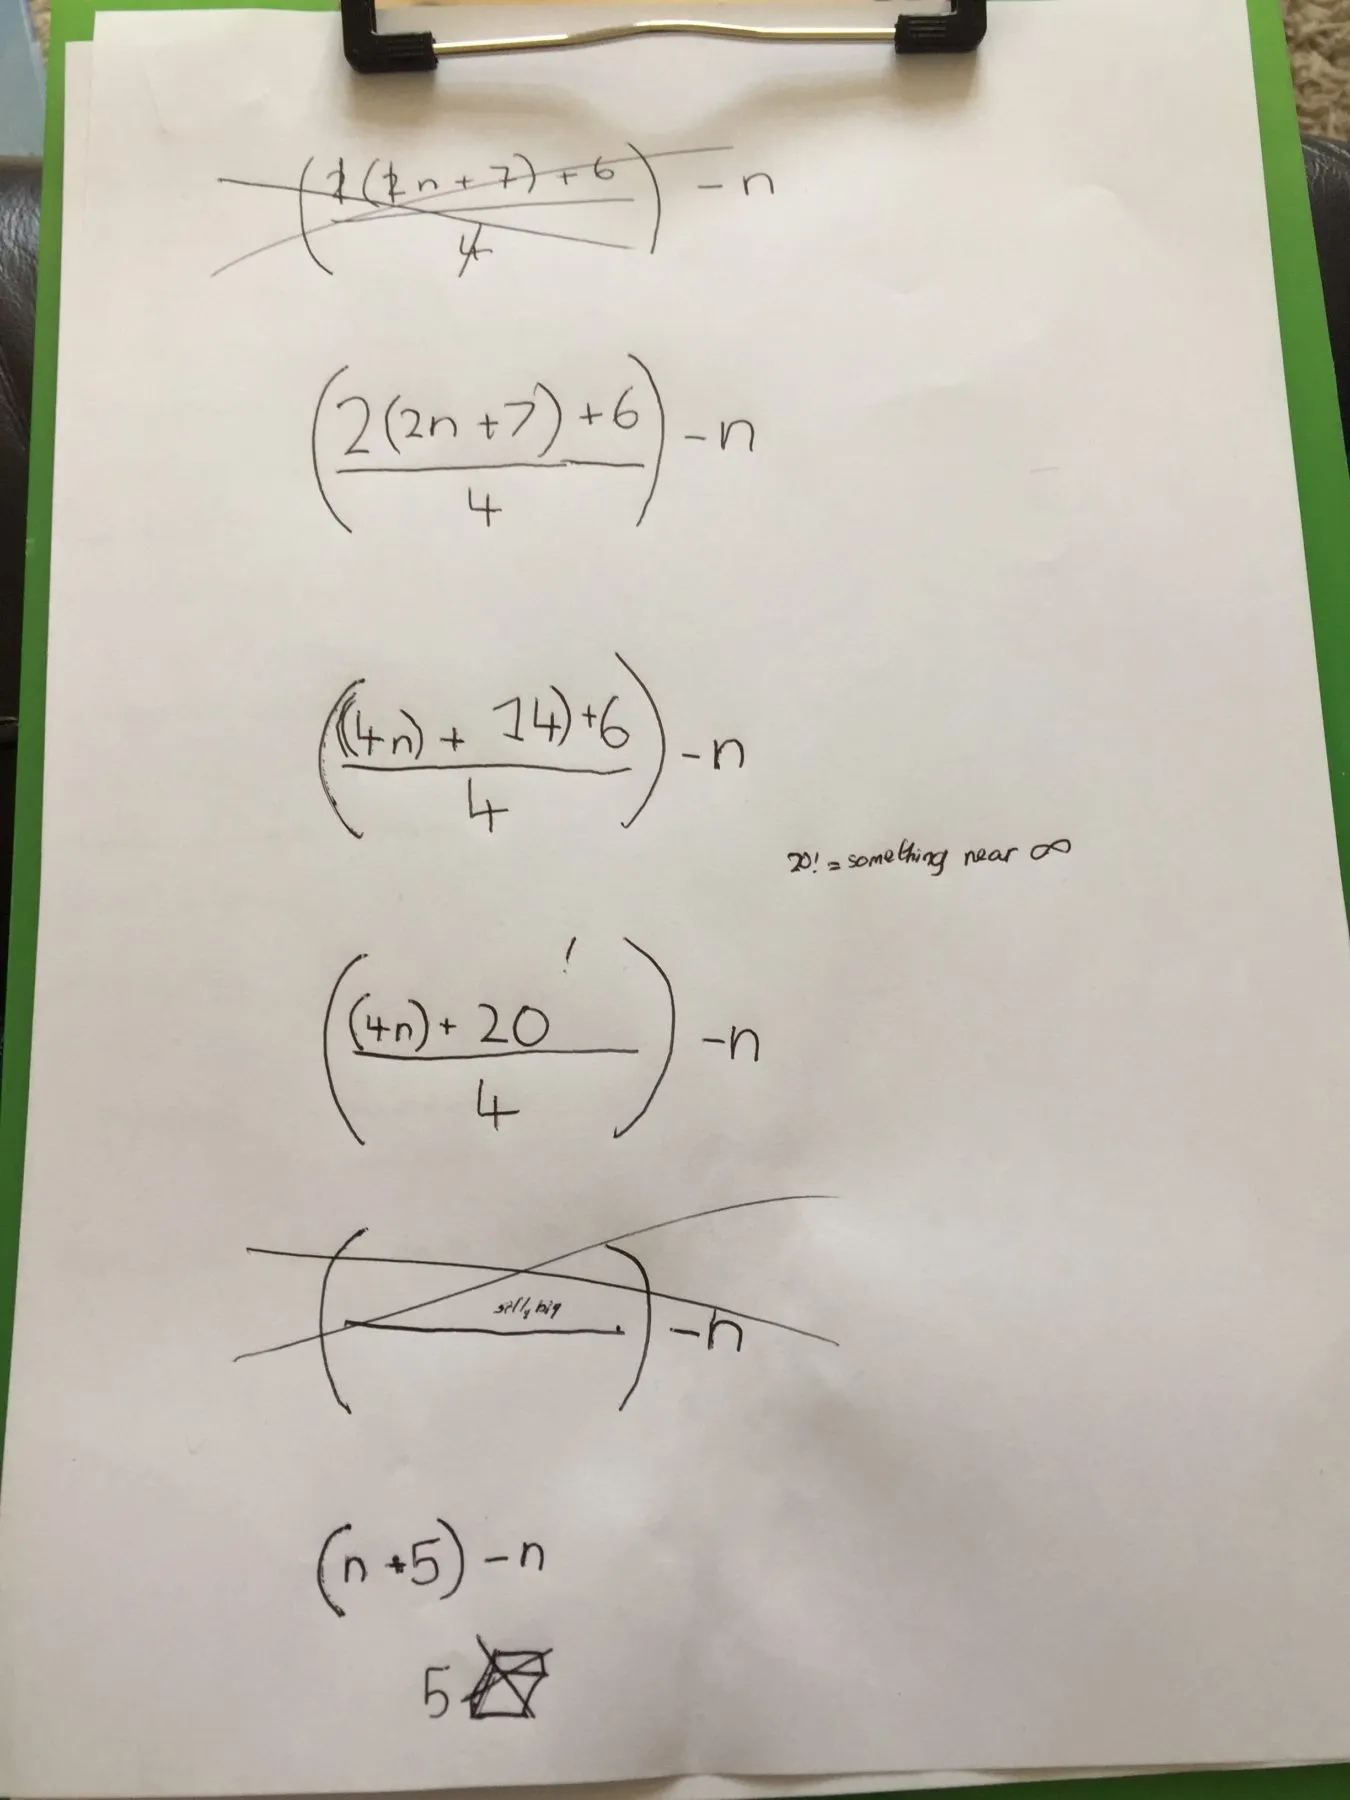 (2(2n + 7) + 6) - n
4
(2(2n + 7) + 6) - n
4
((4n) + 14) + 6) - n
4
20! = something near ∞
!
((4n) + 20) - n
4
(silly big) - n
(n + 5) - n
5